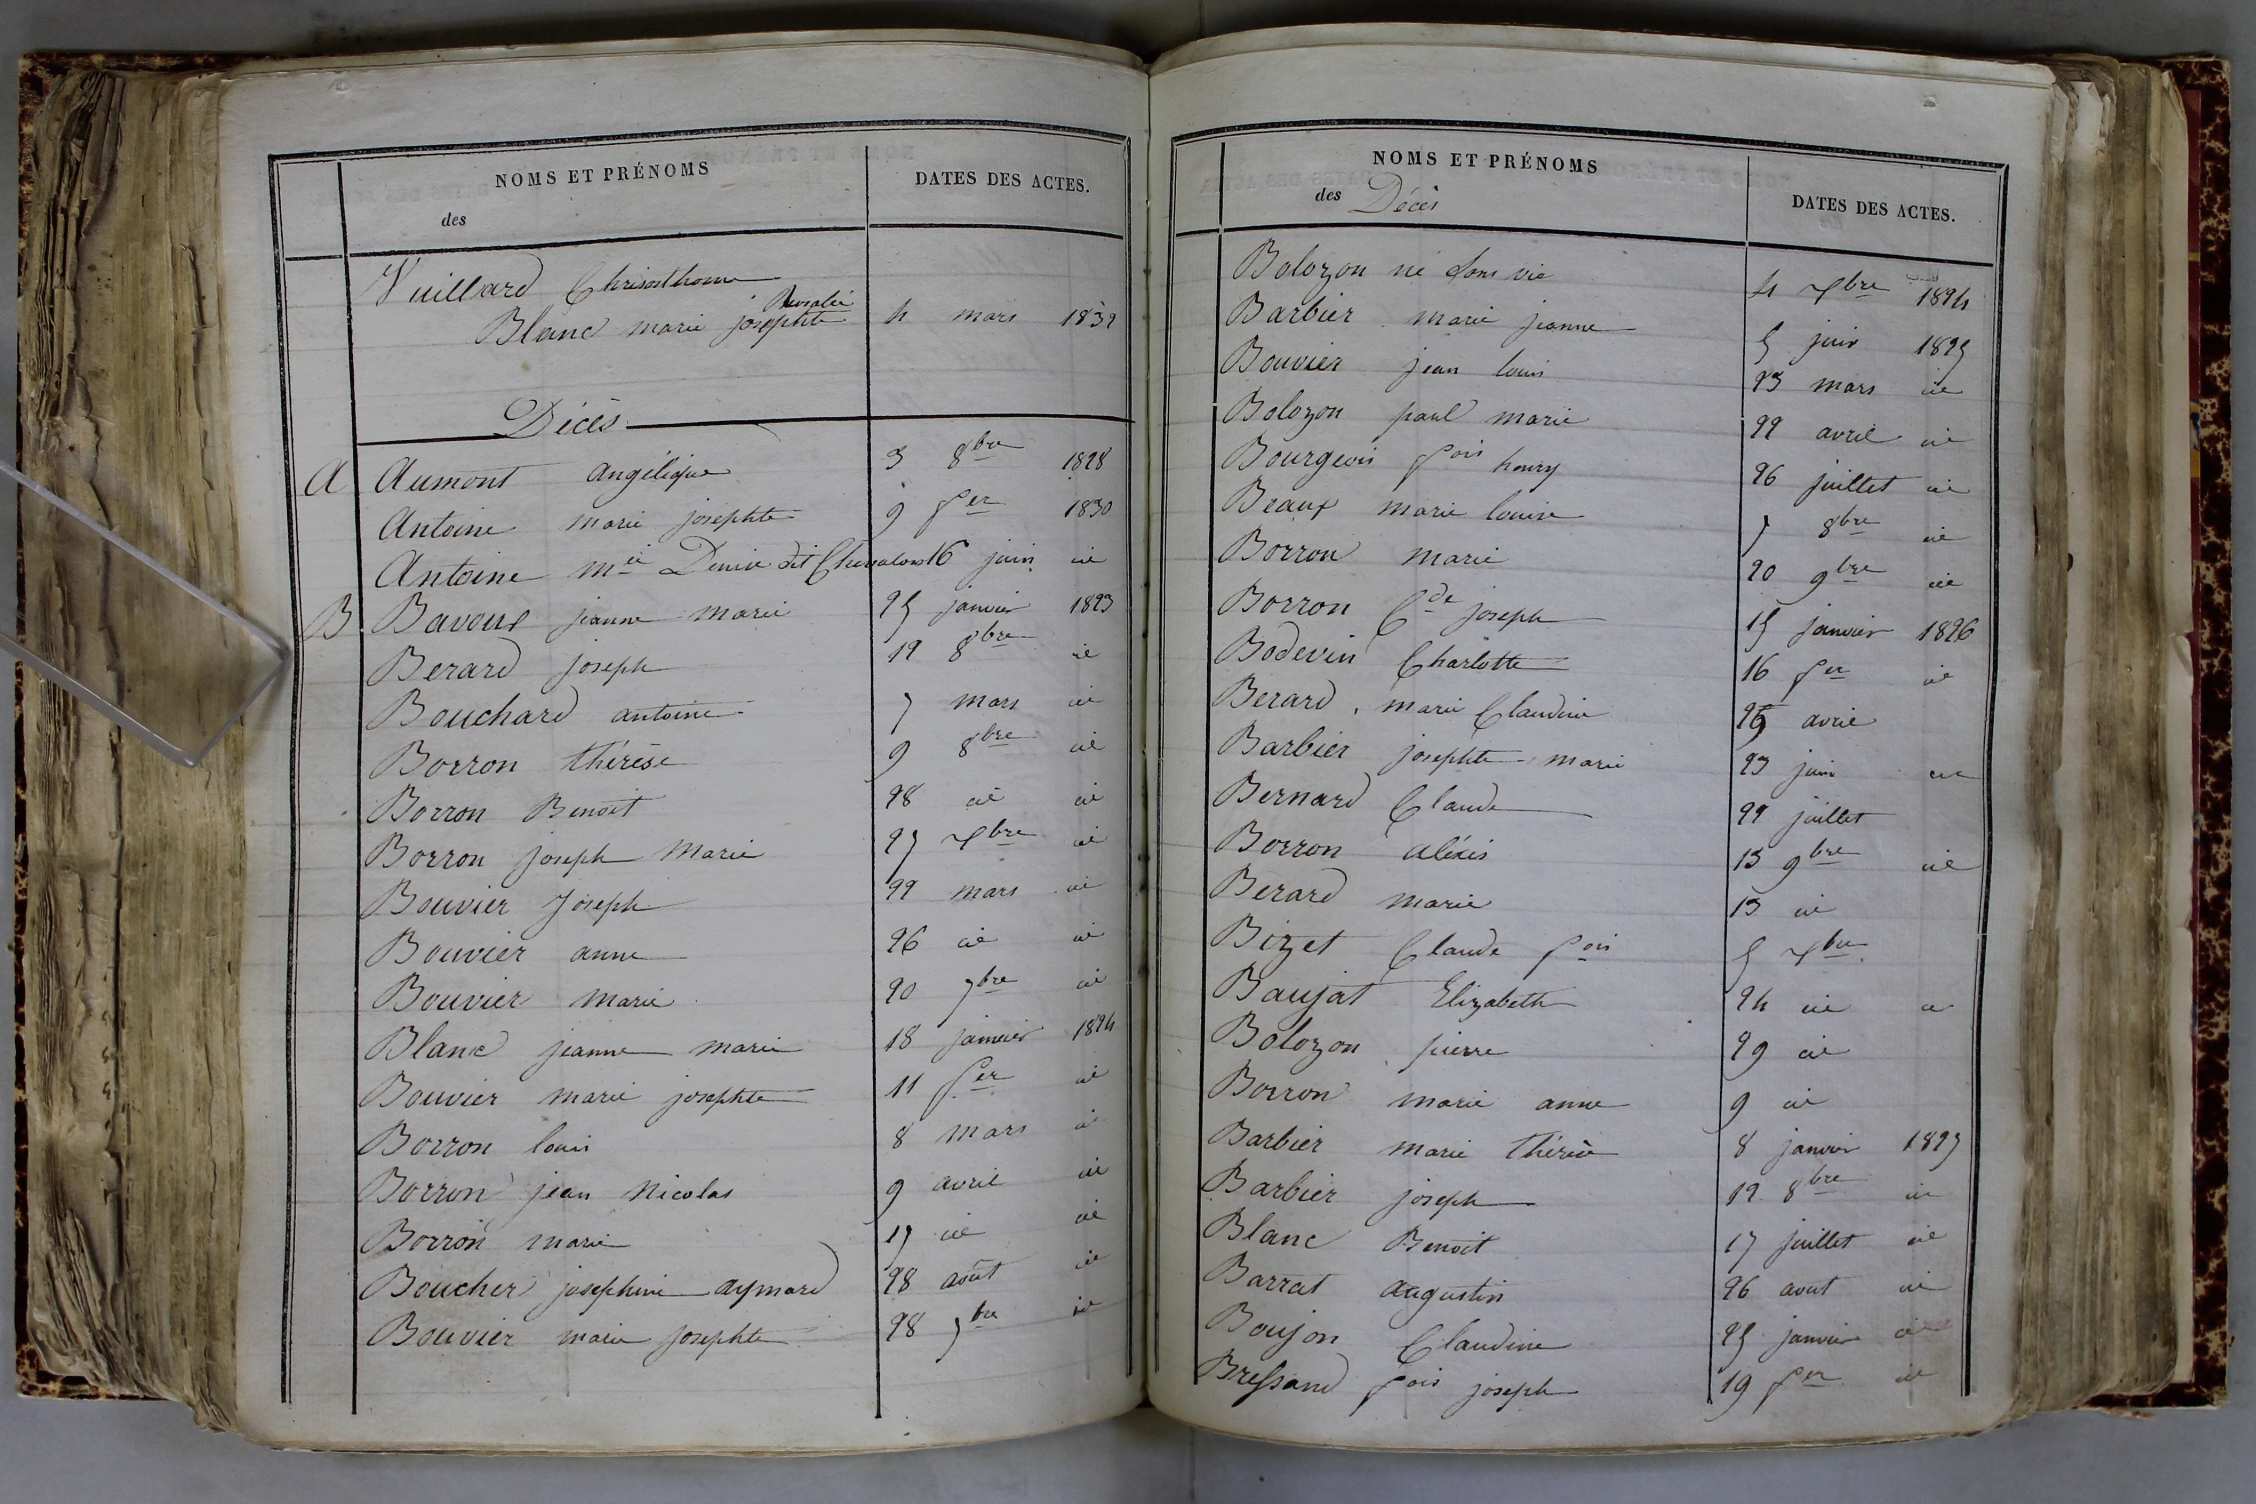 NOMS ET PRÉNOMS
DATES DES ACTES.
des
Vuillard Chrisosthome
Rosalie
Blanc marie josephte 4 mars 1832
Décès
A Aumont angélique 3 8bre 1828
Antoine marie josephte 9 fer 1830
Antoine mie Denise dit Chevalons 16 juin id
B Bavoux jeanne marie 25 janvier 1823
Berard joseph 12 8bre id
Bouchard antoine 7 mars id
Borron thérèse 9 8bre id
Borron Benoit 28 id id
Borron joseph Marie 27 Xbre id
Bouvier Joseph 22 mars id
Bouvier anne 26 id id
Bouvier Marie 20 7bre id
Blanc jeanne marie 18 janvier 1824
Bouvier marie josephte 11 fer id
Borron louis 8 Mars id
Borron jean Nicolas 9 avril id
Borron marie 17 id id
Boucher josephine aymard 28 août id
Bouvier marie josephte 28 7bre id
NOMS ET PRÉNOMS
DATES DES ACTES.
des Décès
Bolozon né sans vie 4 Xbre 1824
Barbier marie jeanne 5 juin 1825
Bouvier jean louis 23 mars id
Bolozon paul marie 22 avril id
Bourgeois fois henry 26 juillet id
Beaux marie louise 7 8bre id
Borron marie 20 9bre id
Borron Cde joseph 15 janvier 1826
Bodevin Charlotte 16 fer id
Berard marie Claudine avril
Barbier josephte marie 23 juin id
Bernard Claude 22 juillet
Borron aléxis 13 9bre id
Berard marie 13 id
Bizet Claude fois 5 Xbre
Baujat Elizabeth 24 id id
Bolozon pierre 29 id
Borron marie anne 9 id
Barbier marie thérèse 8 janvier 1827
Barbier joseph 12 8bre id
Blanc Benoit 17 juillet id
Barrat augustin 26 aout id
Boujon Claudine 25 janvier id
Bressand fois joseph 19 fer id